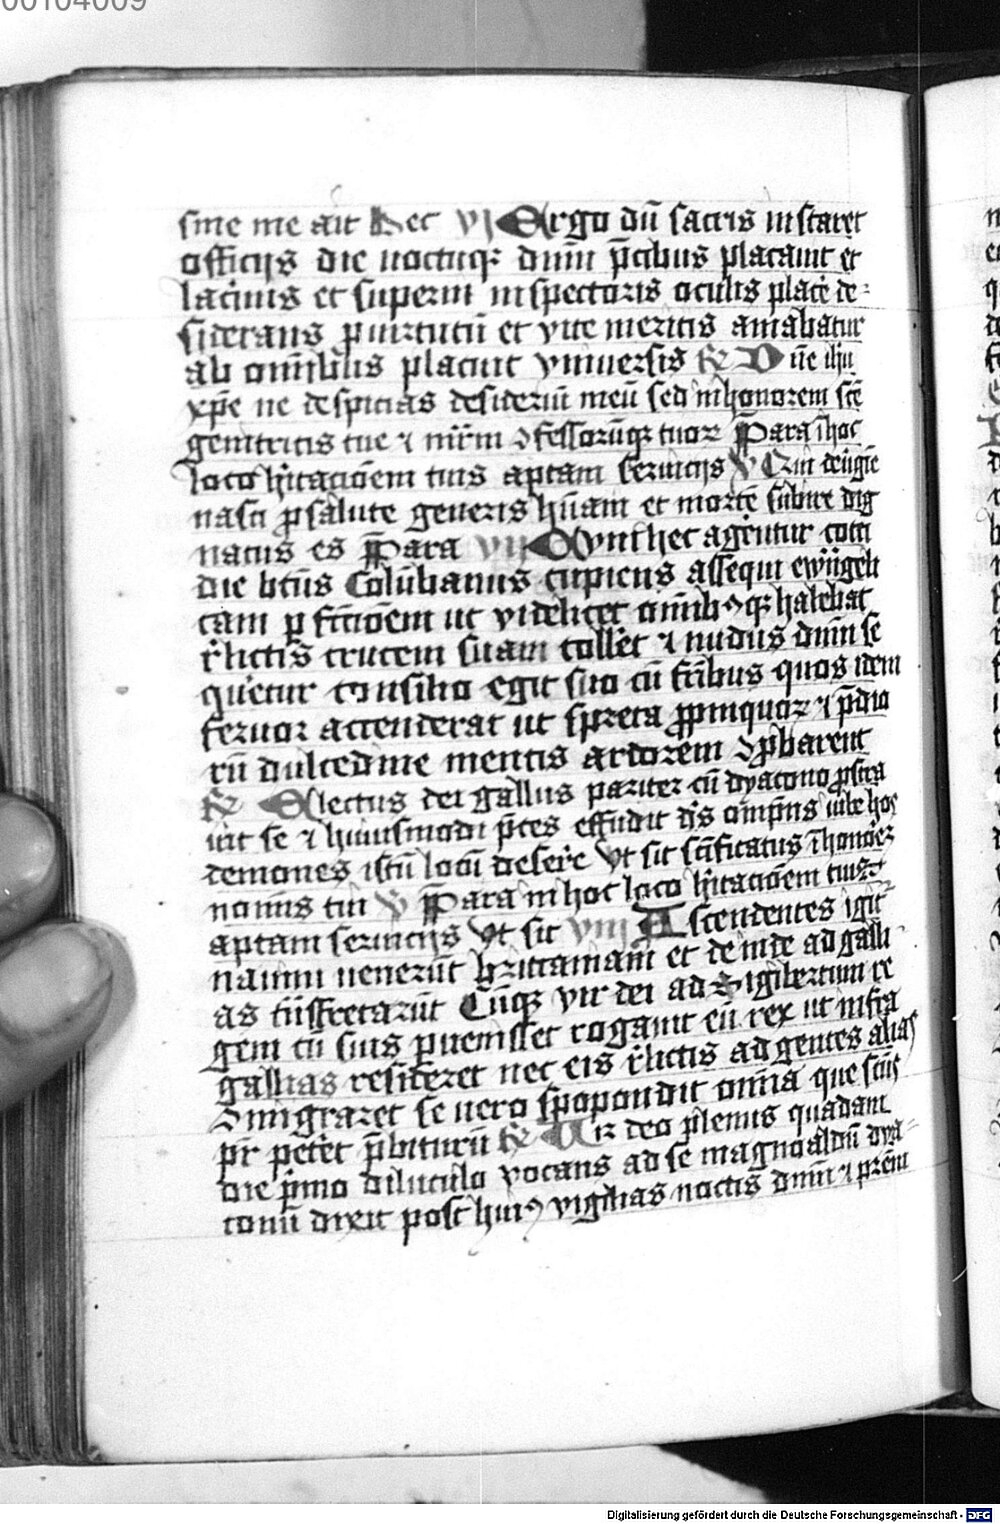 00104009
sine me ait Hec vj Ergo dū sacris instaret
officijs die noctuqꝫ dnm̄ p̄cibus placauit et
lacimis et superni inspectoris oculis place᷒ de⸗
siderans p uirtutū et vite meritis amabatur
ab om̄ibus placuit vniuersis ꝶ Dn̄e ihu
xp̄e ne despicias desideriū meū sed in honorem sc̄e
genitricis tue ⁊ mr̄m ꝯfessorūqꝫ tuoꝝ Para ī hoc
loco hītacōem tuis aptam seruicijs ℣ Qui de ūgīe
nasci ꝓ salute generis hūam et mortē subire dig
natus es Para vij Dum hec agerentur coti
die btūs Columbanus cupiens assequi ewāgeli
cam ꝑfectiōem ut videlicet omībꝰqꝫ halebat
rͥlictis crucem suam tolleret ⁊ nudus dnm̄ se
queretur consilio egit suo cū fr̄ibus quos idem
feruor accenderat ut spreta ꝓpinquoꝝ ⁊ p̄dio
rū dulcedine mentis ardorem ꝯꝓbarent
ꝶ Electus dei gallus pariter cū dyacono ꝓstra
uit se ⁊ huiusmodi p̄ces effudit dn̄s om̄pn̄s iube hos
demones istū locū desere᷒ Vt sit sc̄ificatus ī honore᷒
nominis tui ℣ Para in hoc loco hītacōem tuis
aptam seruicijs Vt sit viij Ascendentes igit᷒
nauim uenerūt brittaniam et de inde ad galli
as trāsfretarūt Cūqꝫ vir dei ad Sigibertum re
gem cū suis ꝑuenisset rogauit eū rex ut infra
gallias resideret nec eis rͥlictis ad gentes alias
ꝯmigraret se uero spopondit omīa que sc̄us
pr̄ peteret p̄biturū ꝶ Vir deo plenus quadam
die p̄mo diluculo vocans ad se magnoaldū dya⸗
conū dixit post huiꝰ vigilias noctis dnm̄ ⁊ p̄rem
Digitalisierung gefördert durch die Deutsche Forschungsgemeinschaft - DFG